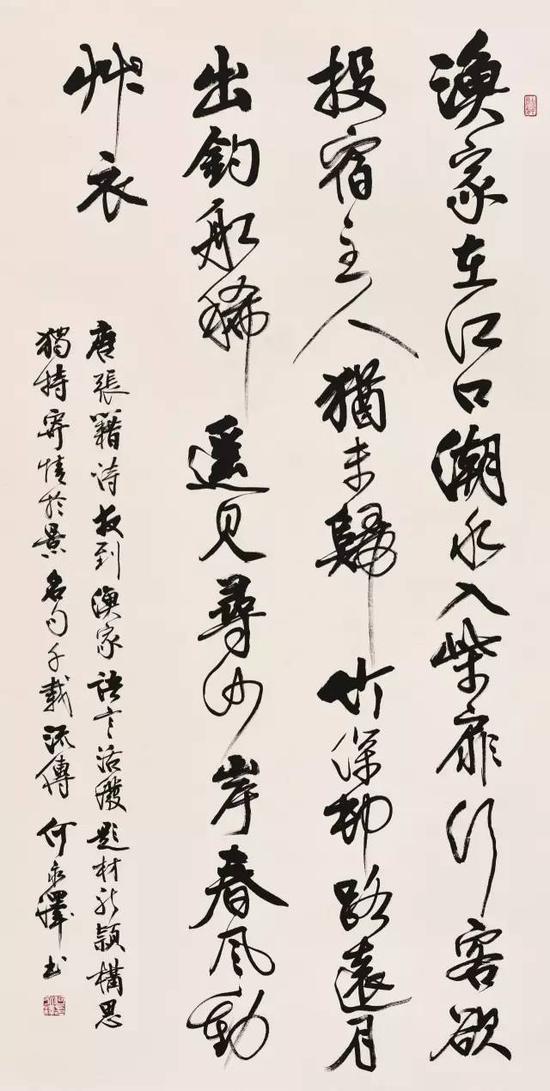 漁家在江口潮水入柴扉行客欲
投宿主人猶未歸竹深邨路遠月
出釣船稀遙見尋沙岸春風動
艸衣
唐張籍詩夜到漁家語言活潑題材新穎構思
獨特寄情於景名句千載流傳 何永澤書